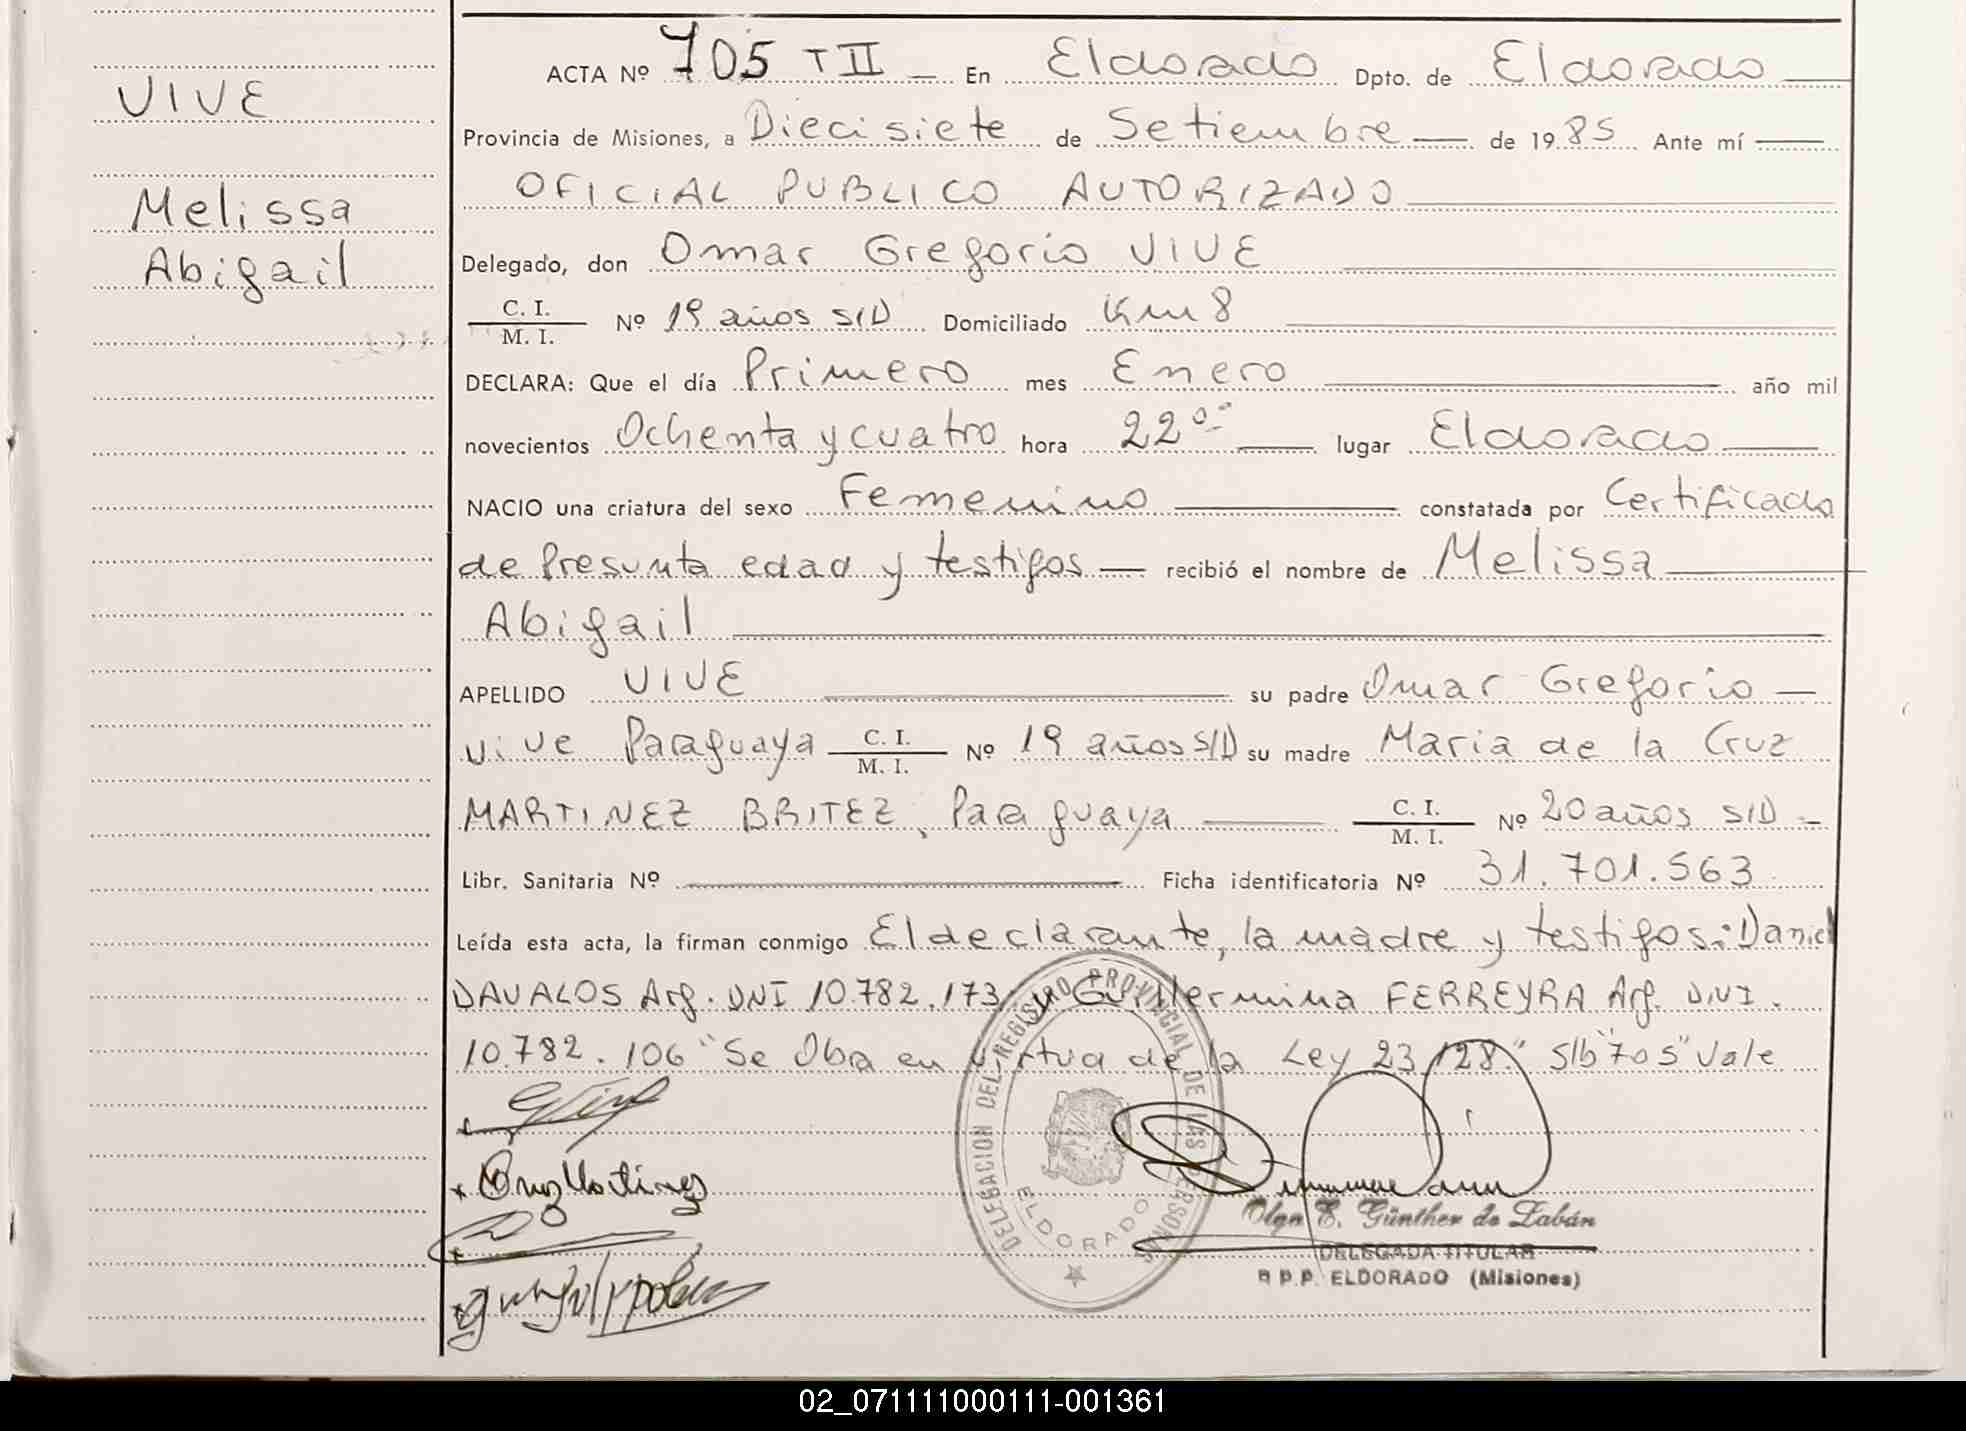 VIVE
Melissa
Abigail
ACTA Nº 705 T II — En Eldorado Dpto. de Eldorado
Provincia de Misiones, a Diecisiete de Setiembre de 1985 Ante mí
OFICIAL PUBLICO AUTORIZADO
Delegado, don Omar Gregorio VIVE
C. I. / M. I. Nº 19 años S/D Domiciliado Km 8
DECLARA: Que el día Primero mes Enero año mil
novecientos Ochenta y cuatro hora 22 00 lugar Eldorado
NACIO una criatura del sexo Femenino constatada por Certificado
de Presunta edad y testigos — recibió el nombre de Melissa
Abigail
APELLIDO VIVE su padre Omar Gregorio
Vive Paraguaya C. I. / M. I. Nº 19 años S/D su madre Maria de la Cruz
MARTINEZ BRITEZ, Paraguaya C. I. / M. I. Nº 20 años S/D
Libr. Sanitaria Nº Ficha identificatoria Nº 31.701.563
Leída esta acta, la firman conmigo El declarante, la madre y testigos: Daniel
DAVALOS Arg. DNI 10.782.173 y Guillermina FERREYRA Arg. DNI.
10.782.106 "Se Obra en virtud de la Ley 23.128." S/b "705" Vale
Cruz Martinez
DELEGACION DEL REGISTRO PROVINCIAL DE LAS PERSONAS
ELDORADO
Olga E. Günther de Zabán
DELEGADA TITULAR
R.P.P. ELDORADO (Misiones)
02_071111000111-001361